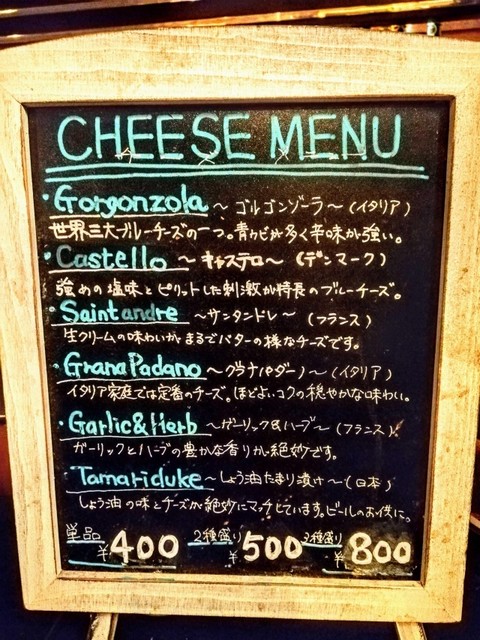 CHEESE MENU
・Gorgonzola ～ゴルゴンゾーラ～(イタリア)
世界三大ブルーチーズの一つ。青カビが多く辛味が強い。
・Castello ～キャステロ～(デンマーク)
強めの塩味とピリットした刺激が特長のブルーチーズ。
・Saint andre ～サンタンドレ～(フランス)
生クリームの味わいがまるでバターの様なチーズです。
・Grana Padano ～グラナパダーノ～(イタリア)
イタリア家庭では定番のチーズ。ほどよいコクの穏やかな味わい。
・Garlic&Herb ～ガーリック&ハーブ～(フランス)
ガーリックとハーブの豊かな香りが絶妙です。
・Tamariduke ～しょう油たまり漬け～(日本)
しょう油の味とチーズが絶妙にマッチしています。ビールのお供に。
単品 ¥400 2種盛り ¥500 3種盛り ¥800